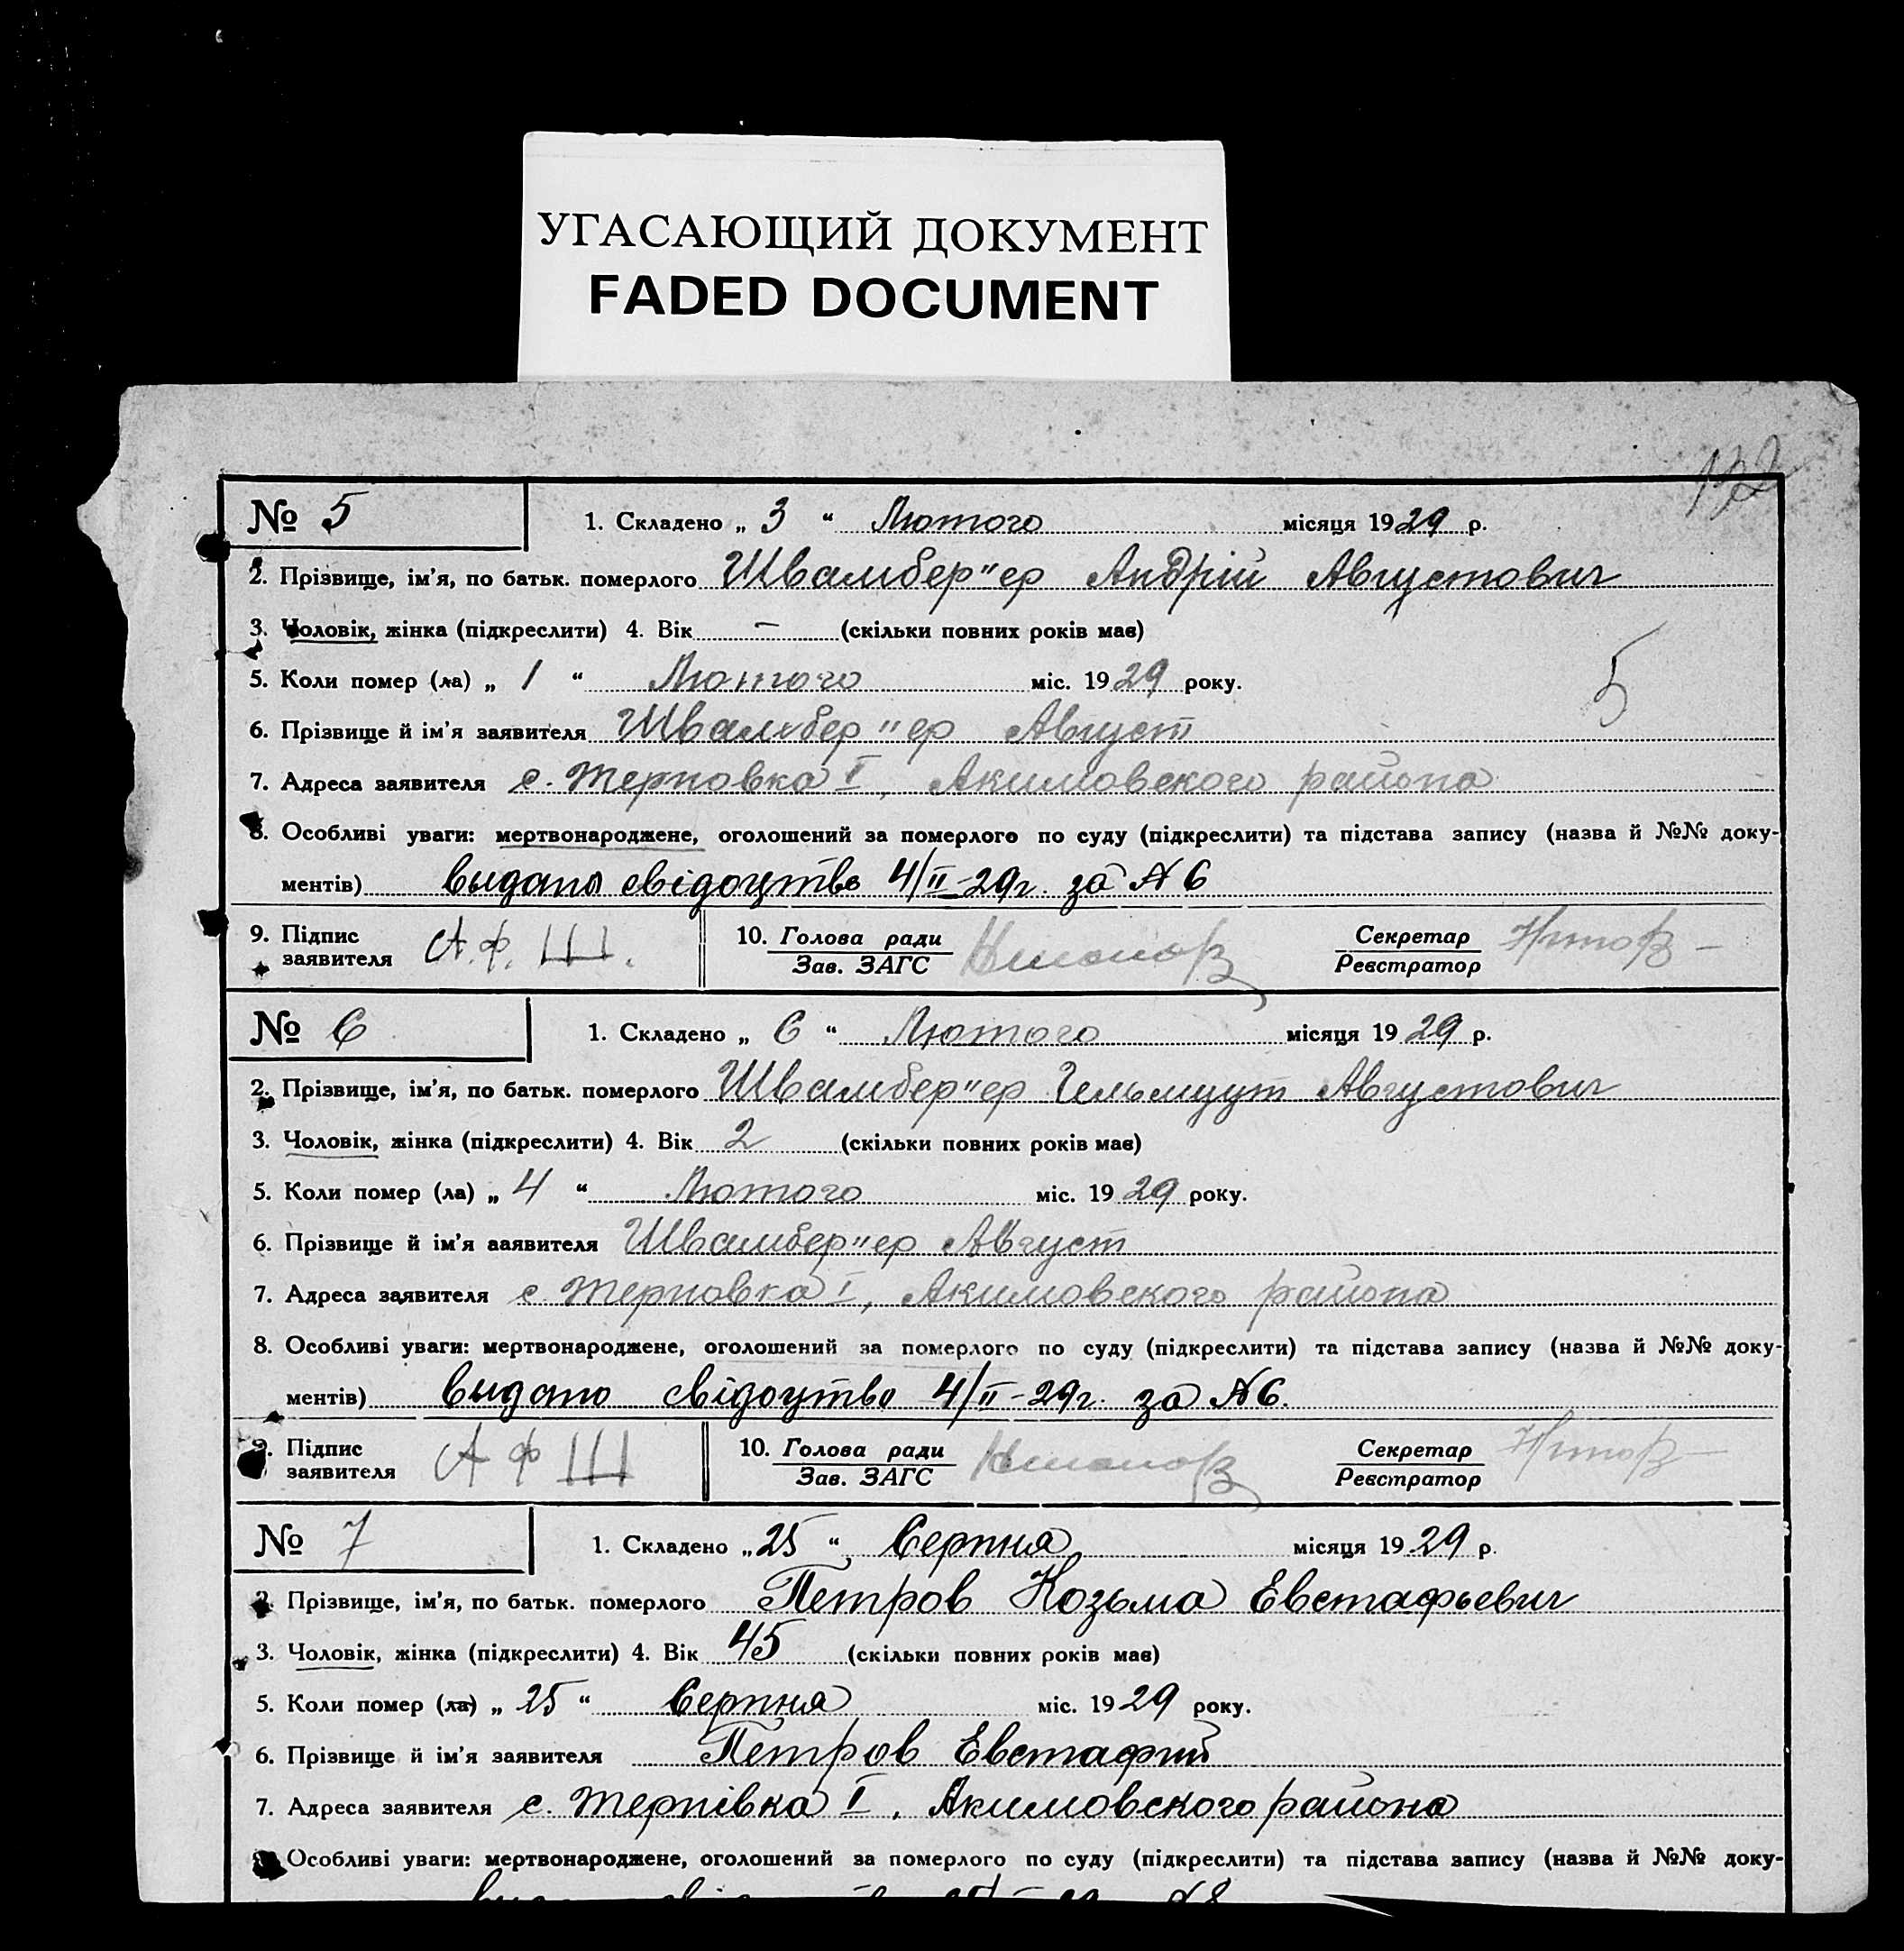 УГАСАЮЩИЙ ДОКУМЕНТ
FADED DOCUMENT
132
№ 5 1. Складено „ 3 “ Лютого місяця 1929 р.
2. Прізвище, ім’я, по батьк. померлого Швамбер"ер Андрій Августович
3. Чоловік, жінка (підкреслити) 4. Вік — (скільки повних років має)
5. Коли помер (ла) „ 1 “ Лютого міс. 1929 року.
5
6. Прізвище й ім’я заявителя Швамбер"ер Август
7. Адреса заявителя с. Терновка I, Акимовского района
8. Особливі уваги: мертвонароджене, оголошений за померлого по суду (підкреслити) та підстава запису (назва й №№ доку-
ментів) выдано свідоцтво 4/II-29г. за № 6
9. Підпис заявителя А.Ф. Ш. 10. Голова ради Секретар
Зав. ЗАГС Реєстратор
№ 6 1. Складено „ 6 “ Лютого місяця 1929 р.
2. Прізвище, ім’я, по батьк. померлого Швамбер"ер Гельмуут Августович
3. Чоловік, жінка (підкреслити) 4. Вік 2 (скільки повних років має)
5. Коли помер (ла) „ 4 “ Лютого міс. 1929 року.
6. Прізвище й ім’я заявителя Швамбер"ер Август
7. Адреса заявителя с. Терновка I, Акимовского района
8. Особливі уваги: мертвонароджене, оголошений за померлого по суду (підкреслити) та підстава запису (назва й №№ доку-
ментів) выдано свідоцтво 4/II-29г. за № 6.
9. Підпис заявителя А Ф Ш 10. Голова ради Секретар
Зав. ЗАГС Реєстратор
№ 7 1. Складено „ 25 “ Серпня місяця 1929 р.
2. Прізвище, ім’я, по батьк. померлого Петров Козьма Евстафьевич
3. Чоловік, жінка (підкреслити) 4. Вік 45 (скільки повних років має)
5. Коли помер (ла) „ 25 “ Серпня міс. 1929 року.
6. Прізвище й ім’я заявителя Петров Евстафий
7. Адреса заявителя с. Терпівка I, Акимовского района
Особливі уваги: мертвонароджене, оголошений за померлого по суду (підкреслити) та підстава запису (назва й №№ доку-